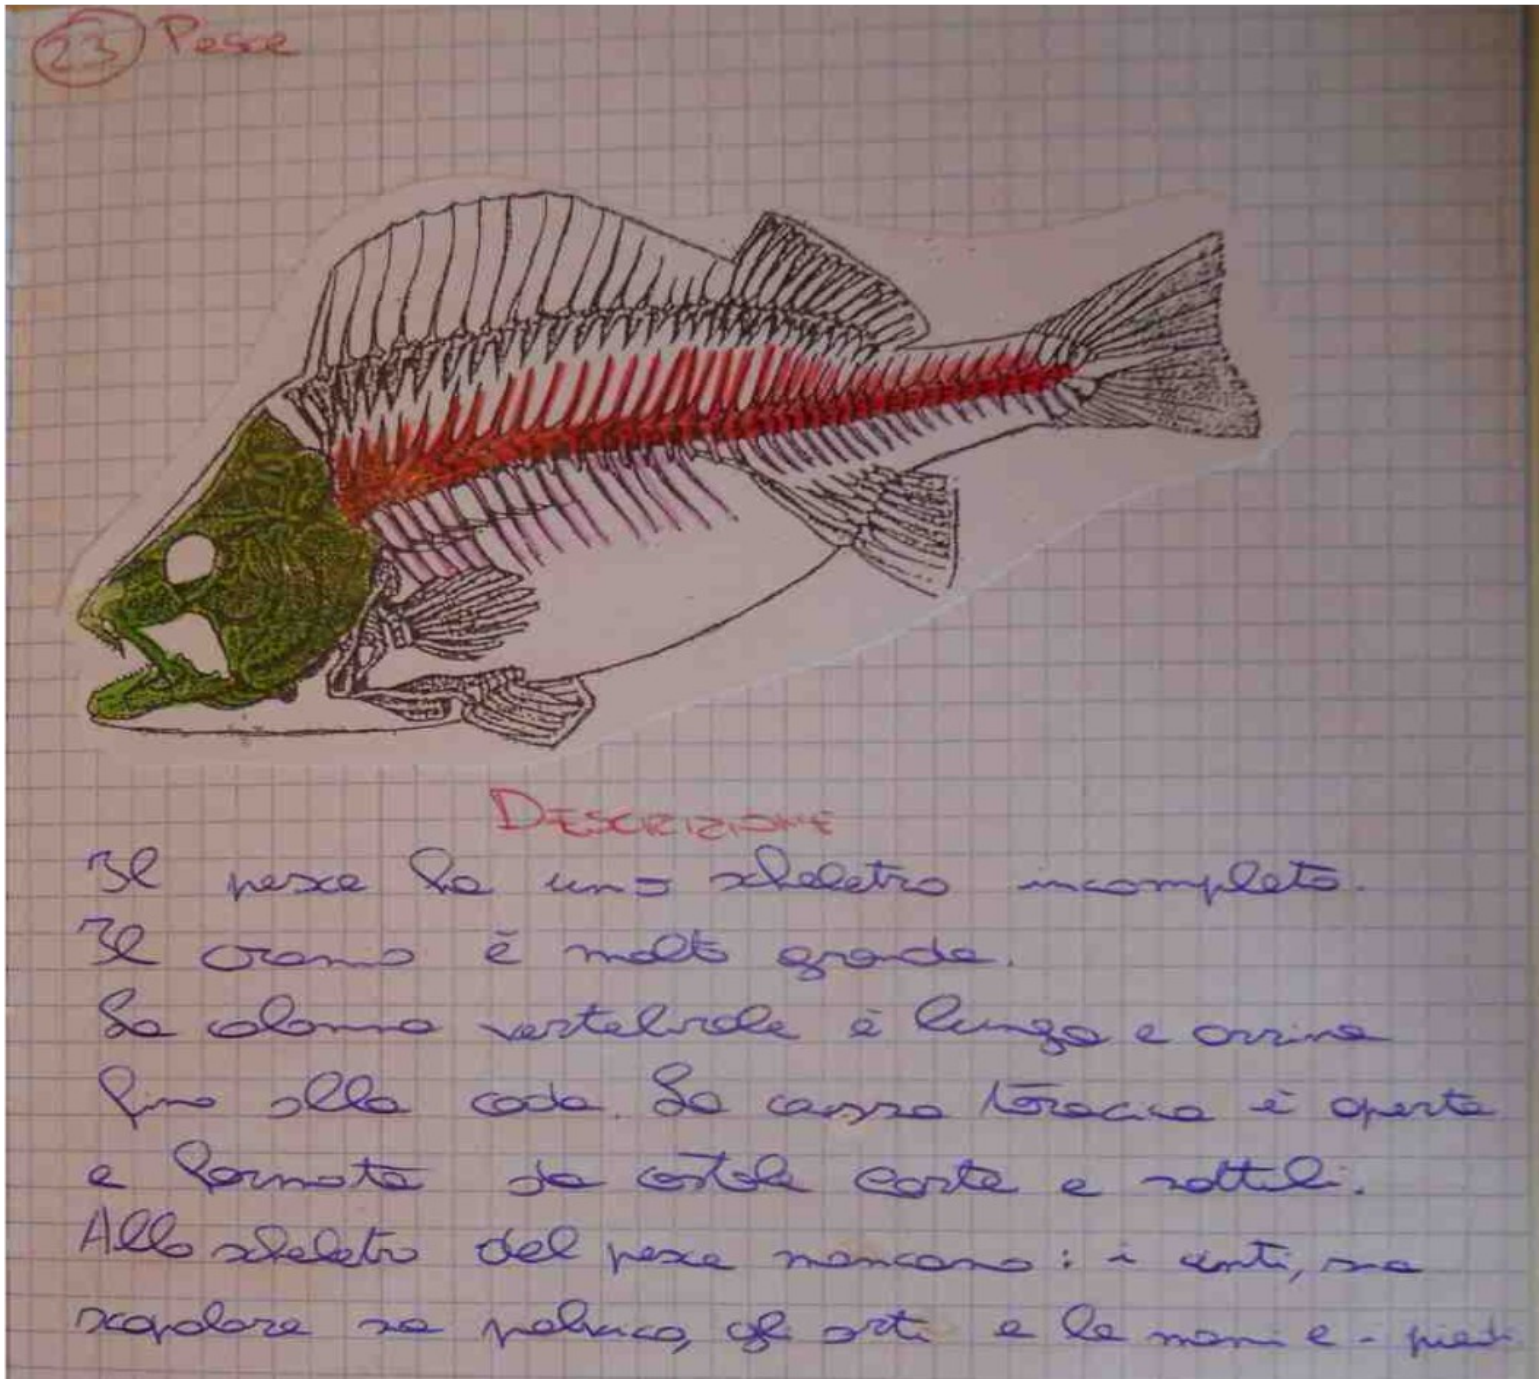 23 Pesce
DESCRIZIONE
Il pesce ha uno scheletro incompleto.
Il cranio è molto grande.
La colonna vertebrale è lunga e arriva
fino alla coda. La cassa toracica è aperta
e formata da costole corte e sottili.
Allo scheletro del pesce mancano: i cinti, sia
scapolare sia pelvico, gli arti e le mani e i piedi